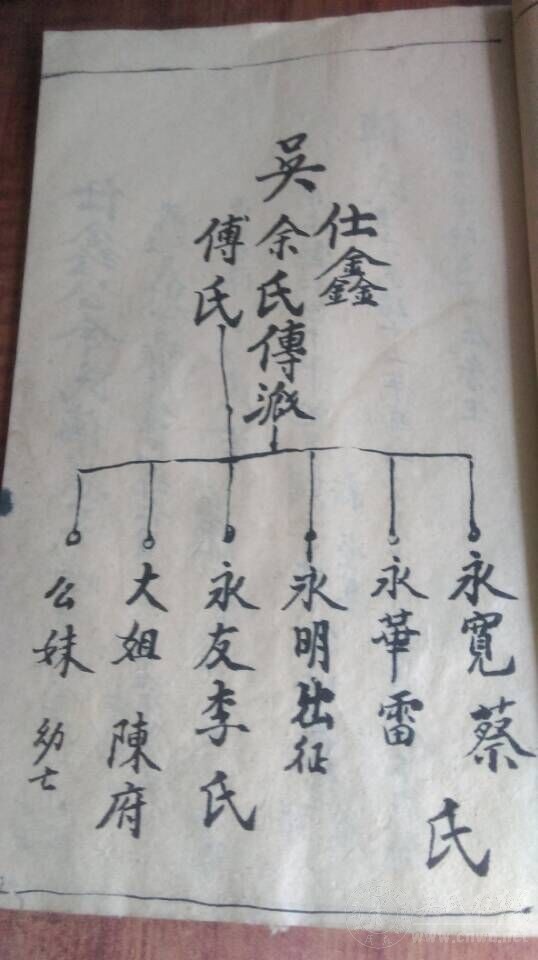 吳
仕鑫
余氏傳派
傅氏
永寬蔡氏
永華雷
永明出征
永友李氏
大姐 陳府
么妹 幼亡